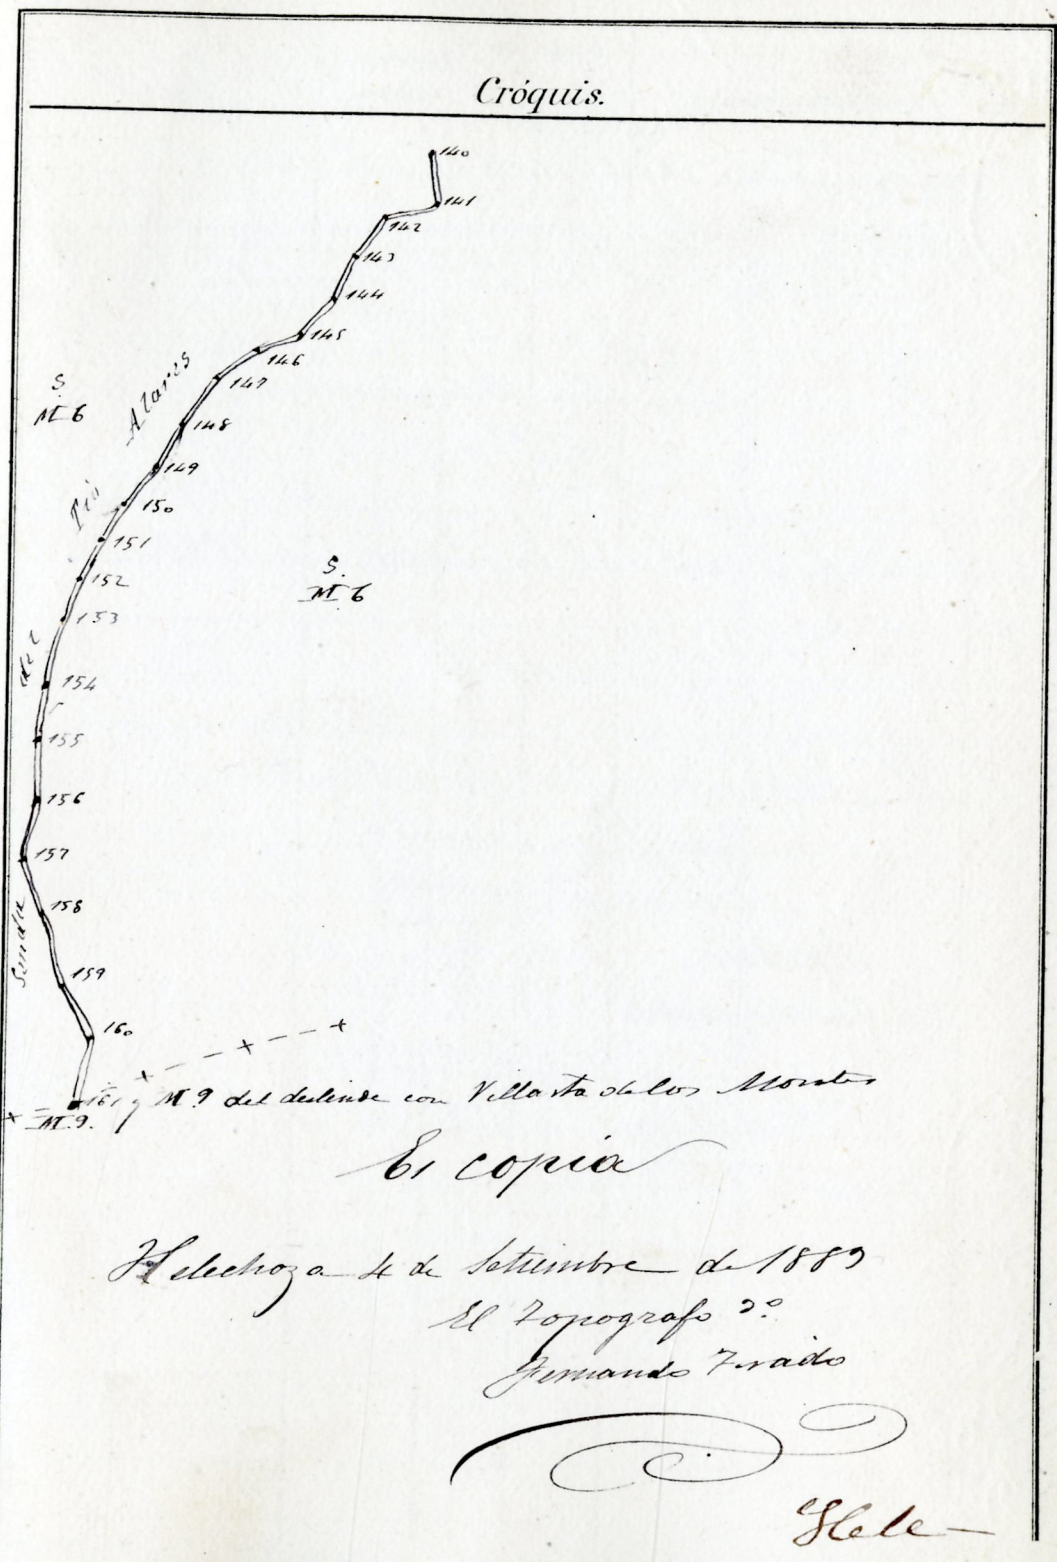 Cróquis.
140
141
142
143
144
145
146
147
148
149
150
151
152
153
154
155
156
157
158
159
160
Senda del Pió Alares
S.
M 6
S.
M. 6
161 y M. 9 del deslinde con Villarta de los Montes
M. 9.
Es copia
Helechoza 4 de Setiembre de 1889
El Topografo 2º
Fernando Tirado
Hele—